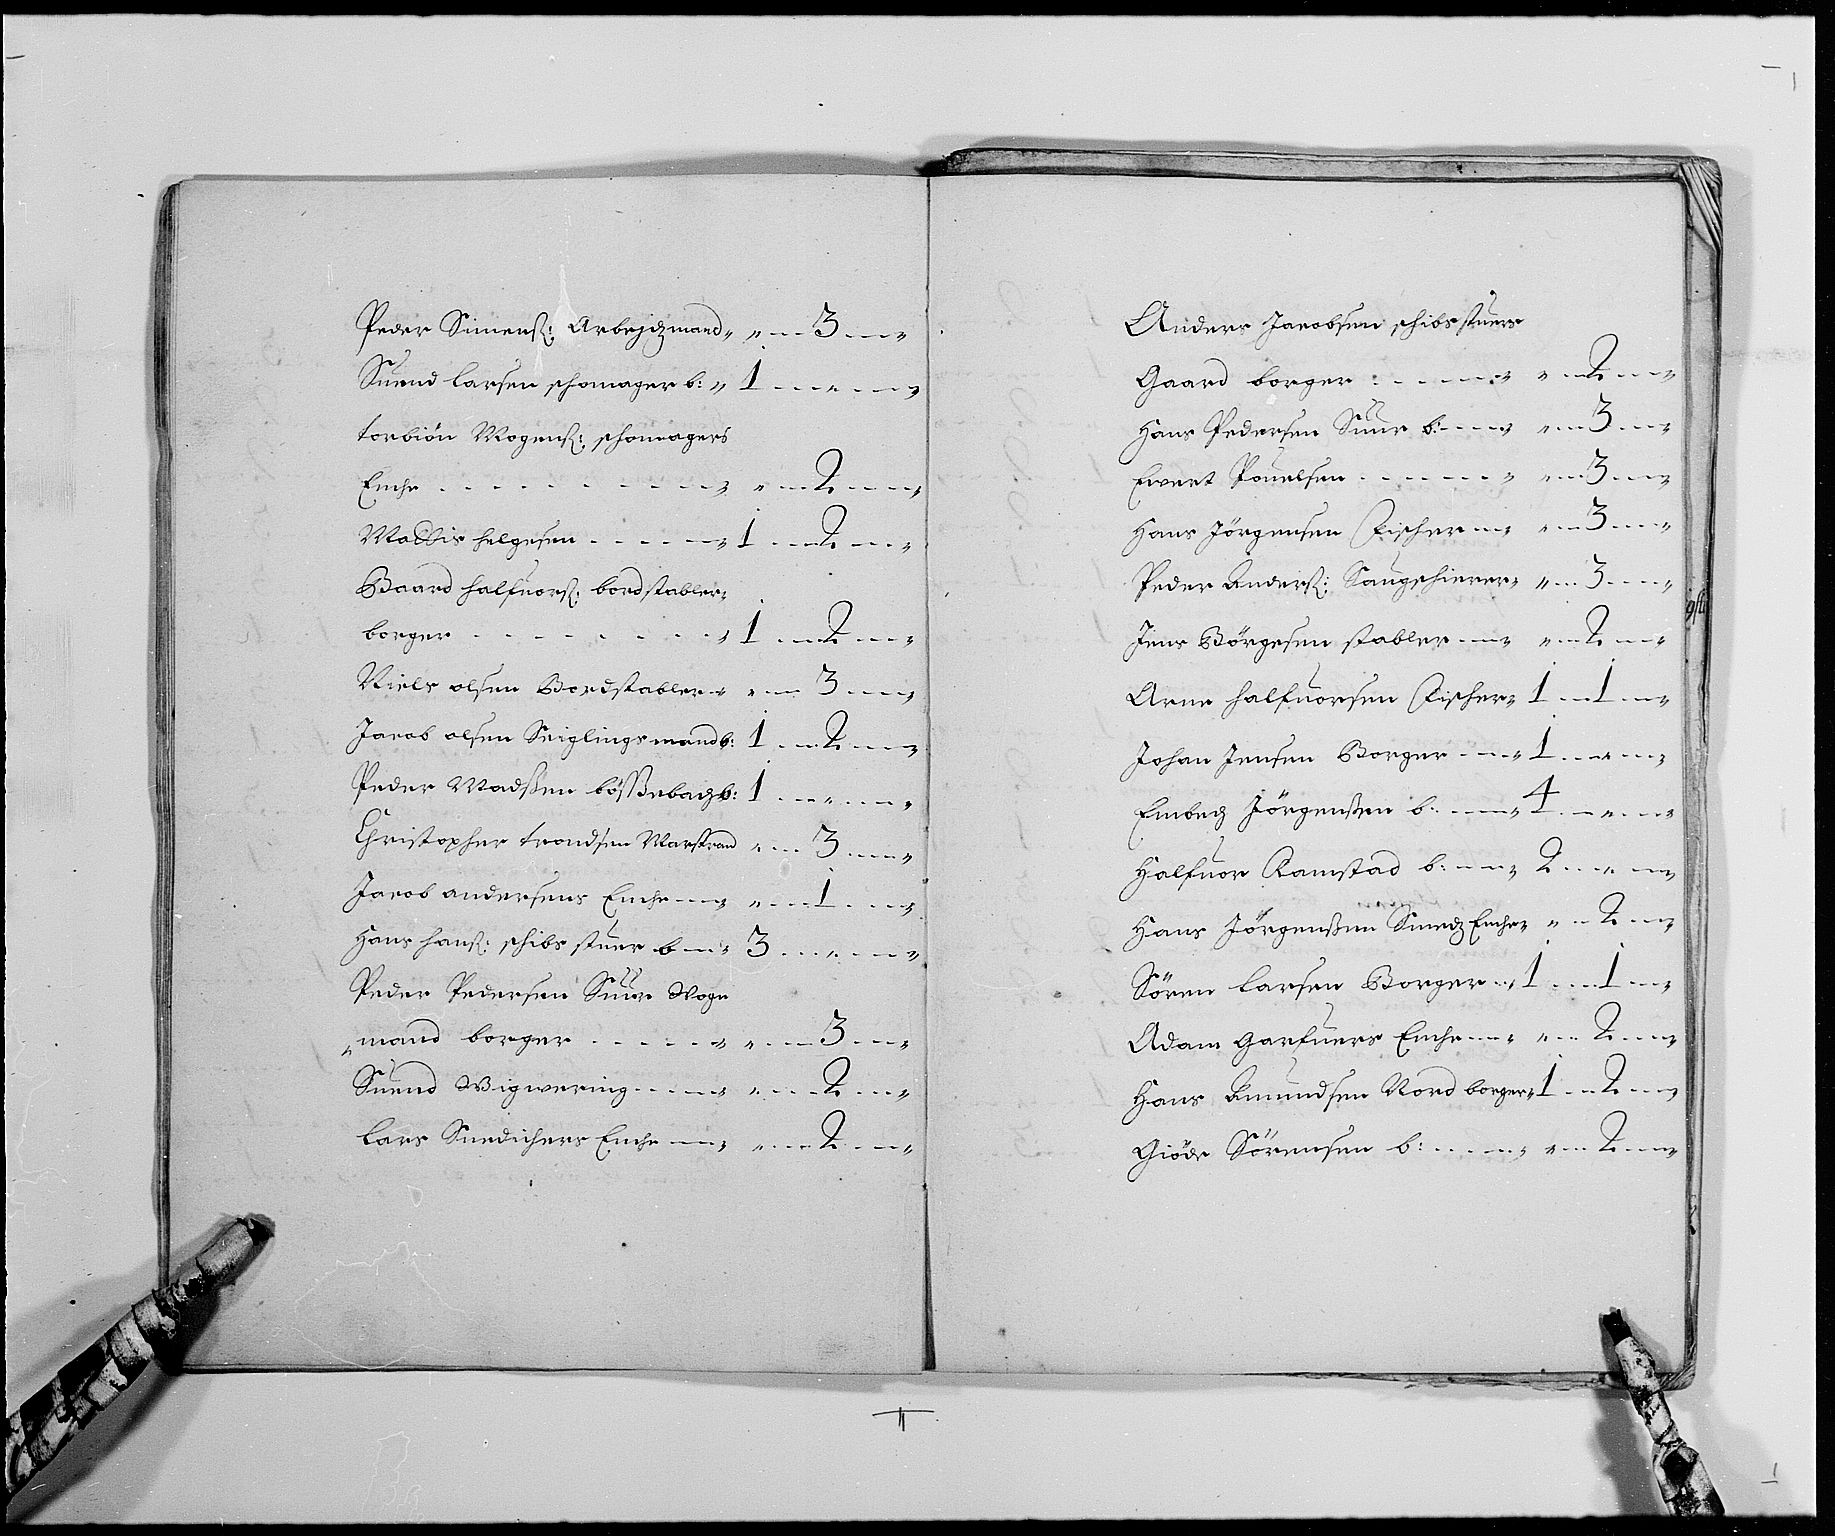 Peder Simenß: Arbejdzmand „ „ 3 „
Suend larsen schomager b: „ 1 „ „
torbiön Mogenß: schomagers
Enche „ „ 2 „
Mattis helgesen „ 1 2 „
Baard halfuorß: bordstabler
borger „ 1 2 „
Niels olsen Bordstabler „ 3 „
Jacob olsen Seiglingsmand b: 1 2 „
Peder Madßen bösßebach b: 1 „ „
Christopher trondsen Marstrand „ 3 „
Jacob andersens Enche „ 1 „
Hans hanß: schibs stuer b 3 „ „
Peder Pedersen Suur Vogn
mand borger „ „ 3 „
Suend Wigwering „ 2 „
Lars Snedichers Enche „ 2 „
Anders Jacobsen schibsstuers
Gaard borger „ „ 2 „
Hans Pedersen Suur b: „ 3 „
Ewert Pouelsen „ „ 3 „
Hans Jörgensen Fischer „ 3 „
Peder Anderß: Saugschierer „ 3 „
Jens Börgesen stabler „ 2 „
Arne halfuorsen Fischer 1 1 „
Johan Jensen Borger 1 „ „
Jörgenßen b: „ 4 „ „
Halfuor Ramstad b: „ 2 „ „
Hans Jörgenßen Smedz Enche „ 2 „
Sören larsen Borger 1 1 „
Adam Garfuers Enche „ 2 „
Hans Amundsen Nord borger 1 2 „
Giöde Sörensen b: „ „ 2 „